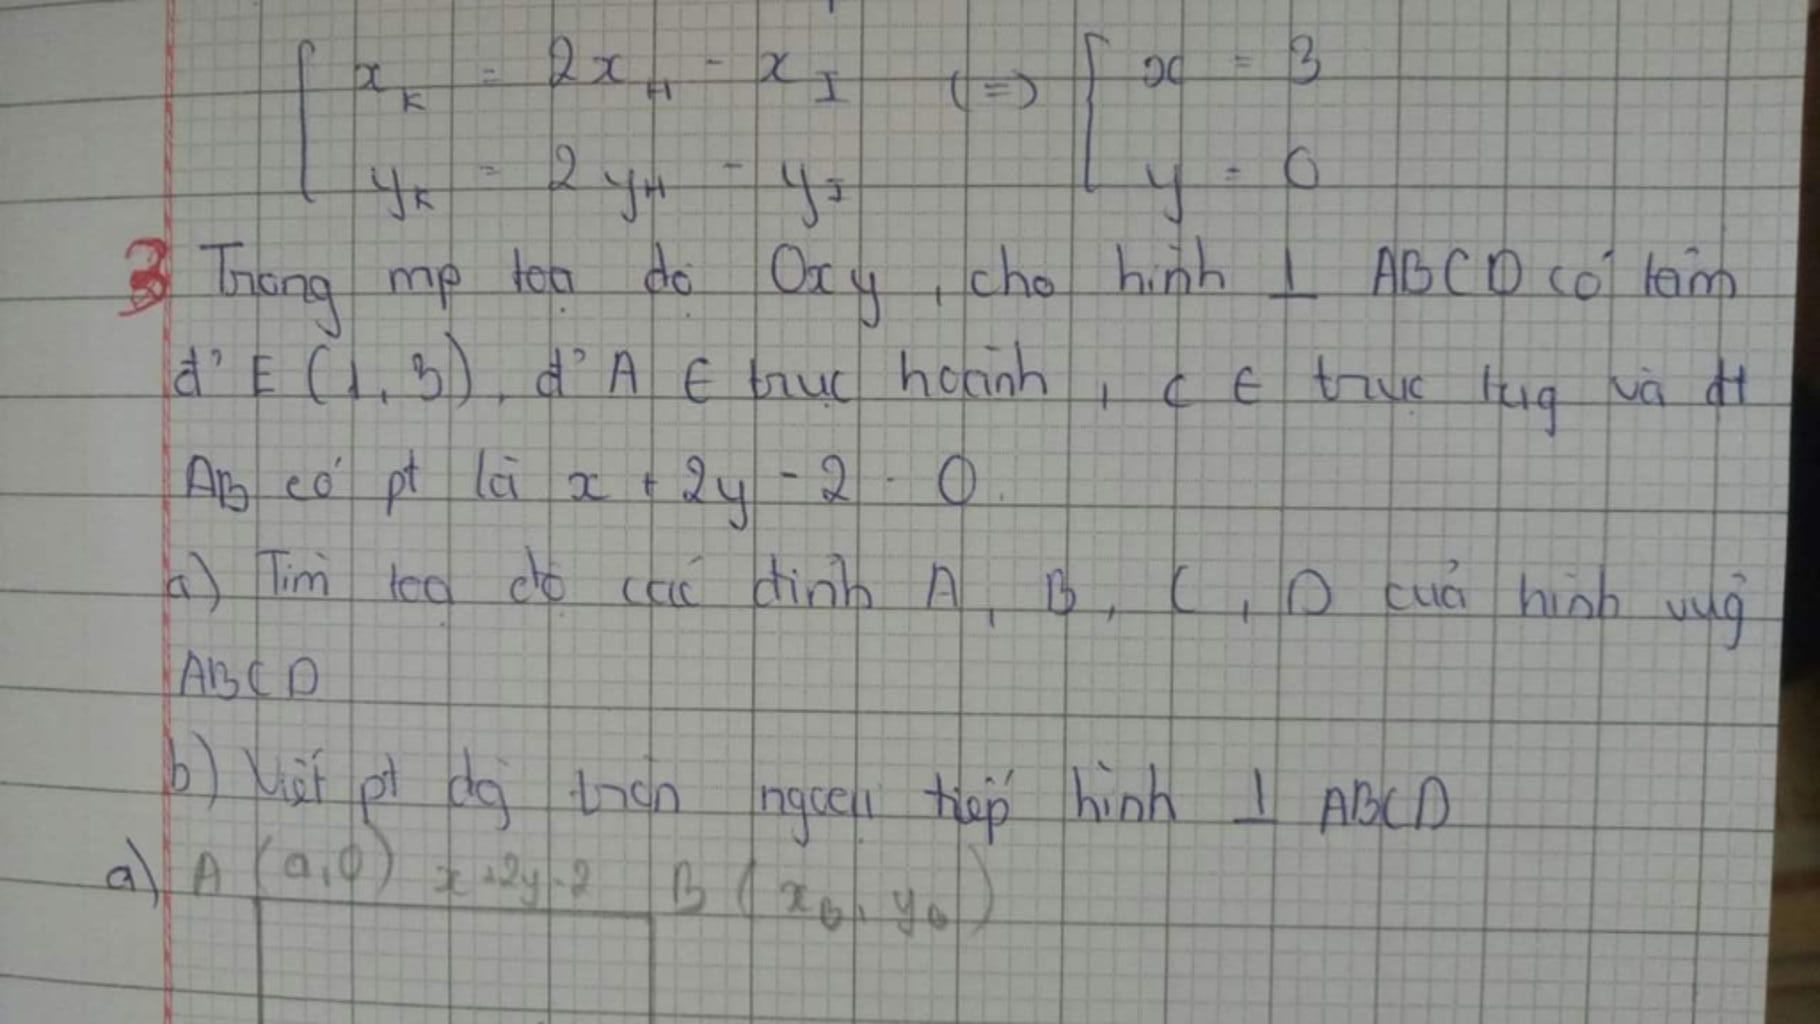 x_K = 2x_H - x_I (=) x = 3
y_K = 2y_H - y_I y = 0
3 Trong mp toạ độ Oxy, cho hình ⊥ ABCD có tâm
đ' E (1, 3), đ' A ∈ trục hoành, C ∈ trục tug và đt
AB có pt là x + 2y - 2 = 0.
a) Tìm toạ độ các đỉnh A, B, C, D của hình vug
ABCD
b) Viết pt dg tròn ngoại tiếp hình ⊥ ABCD
a) A (a, 0) x + 2y - 2 B (x_B, y_B)